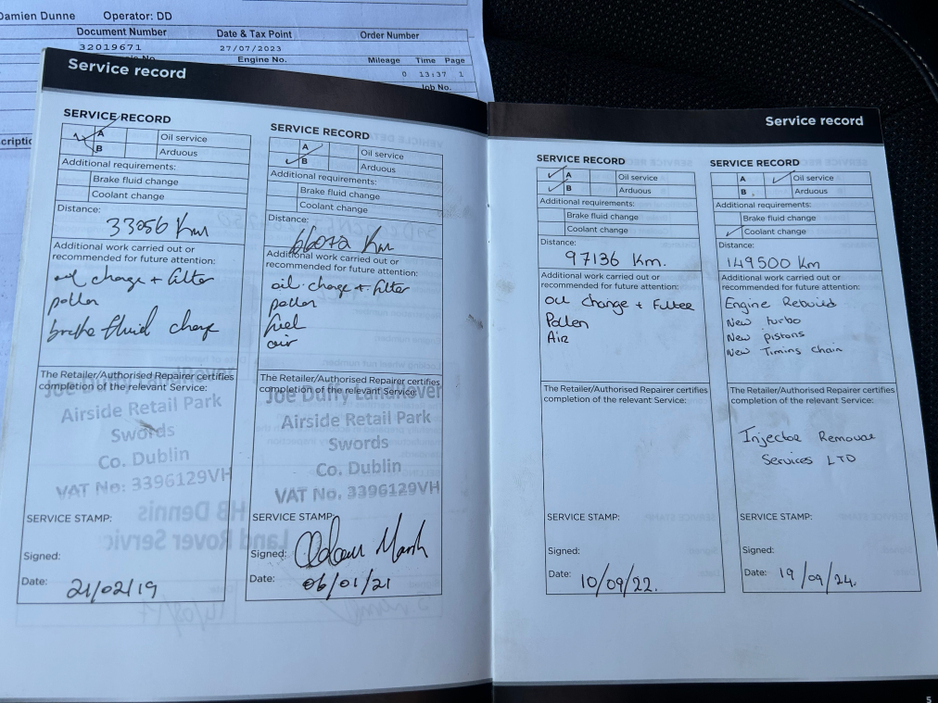 Damien Dunne Operator: DD
Document Number Date & Tax Point Order Number
32019671 27/07/2023
Engine No. Mileage Time Page
0 13:37 1
Job No.
Service record
SERVICE RECORD
A
B
Oil service
Arduous
Additional requirements:
Brake fluid change
Coolant change
Distance:
33056 Km
Additional work carried out or
recommended for future attention:
oil change + filter
pollen
brake fluid change
The Retailer/Authorised Repairer certifies
completion of the relevant Service:
Joe Duffy LandRover
Airside Retail Park
Swords
Co. Dublin
VAT No: 3396129VH
SERVICE STAMP:
Signed:
Date: 21/02/19
SERVICE RECORD
A
B
Oil service
Arduous
Additional requirements:
Brake fluid change
Coolant change
Distance:
66072 Km
Additional work carried out or
recommended for future attention:
oil change + filter
pollen
fuel
air
The Retailer/Authorised Repairer certifies
completion of the relevant Service:
Joe Duffy LandRover
Airside Retail Park
Swords
Co. Dublin
VAT No. 3396129VH
SERVICE STAMP:
Signed:
Date: 06/01/21
Service record
SERVICE RECORD
A
B
Oil service
Arduous
Additional requirements:
Brake fluid change
Coolant change
Distance:
97136 Km.
Additional work carried out or
recommended for future attention:
Oil Change + Filter
Pollen
Air
The Retailer/Authorised Repairer certifies
completion of the relevant Service:
SERVICE STAMP:
Signed:
Date: 10/09/22.
SERVICE RECORD
A
B
Oil service
Arduous
Additional requirements:
Brake fluid change
Coolant change
Distance:
149500 Km
Additional work carried out or
recommended for future attention:
Engine Rebuild
New turbo
New pistons
New Timing chain
The Retailer/Authorised Repairer certifies
completion of the relevant Service:
Injector Removal
Services LTD
SERVICE STAMP:
Signed:
Date: 19/09/24.
5